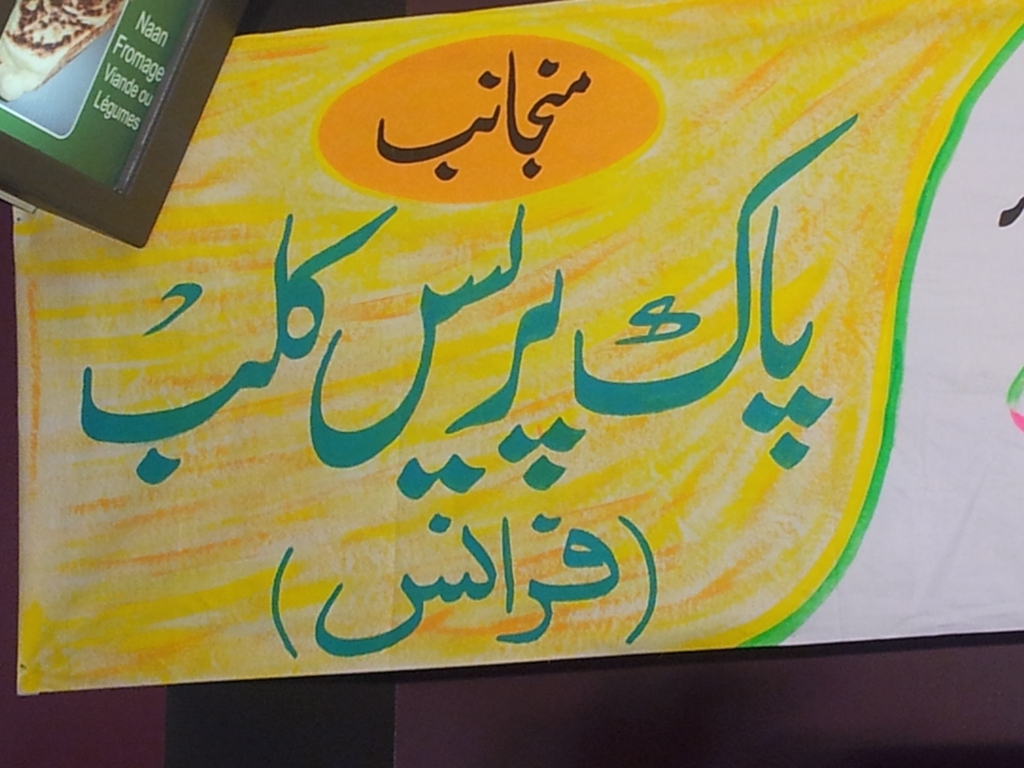 Naan
Fromage
Viande ou
Légumes
منجانب
پاک پریس کلب
(فرانس)